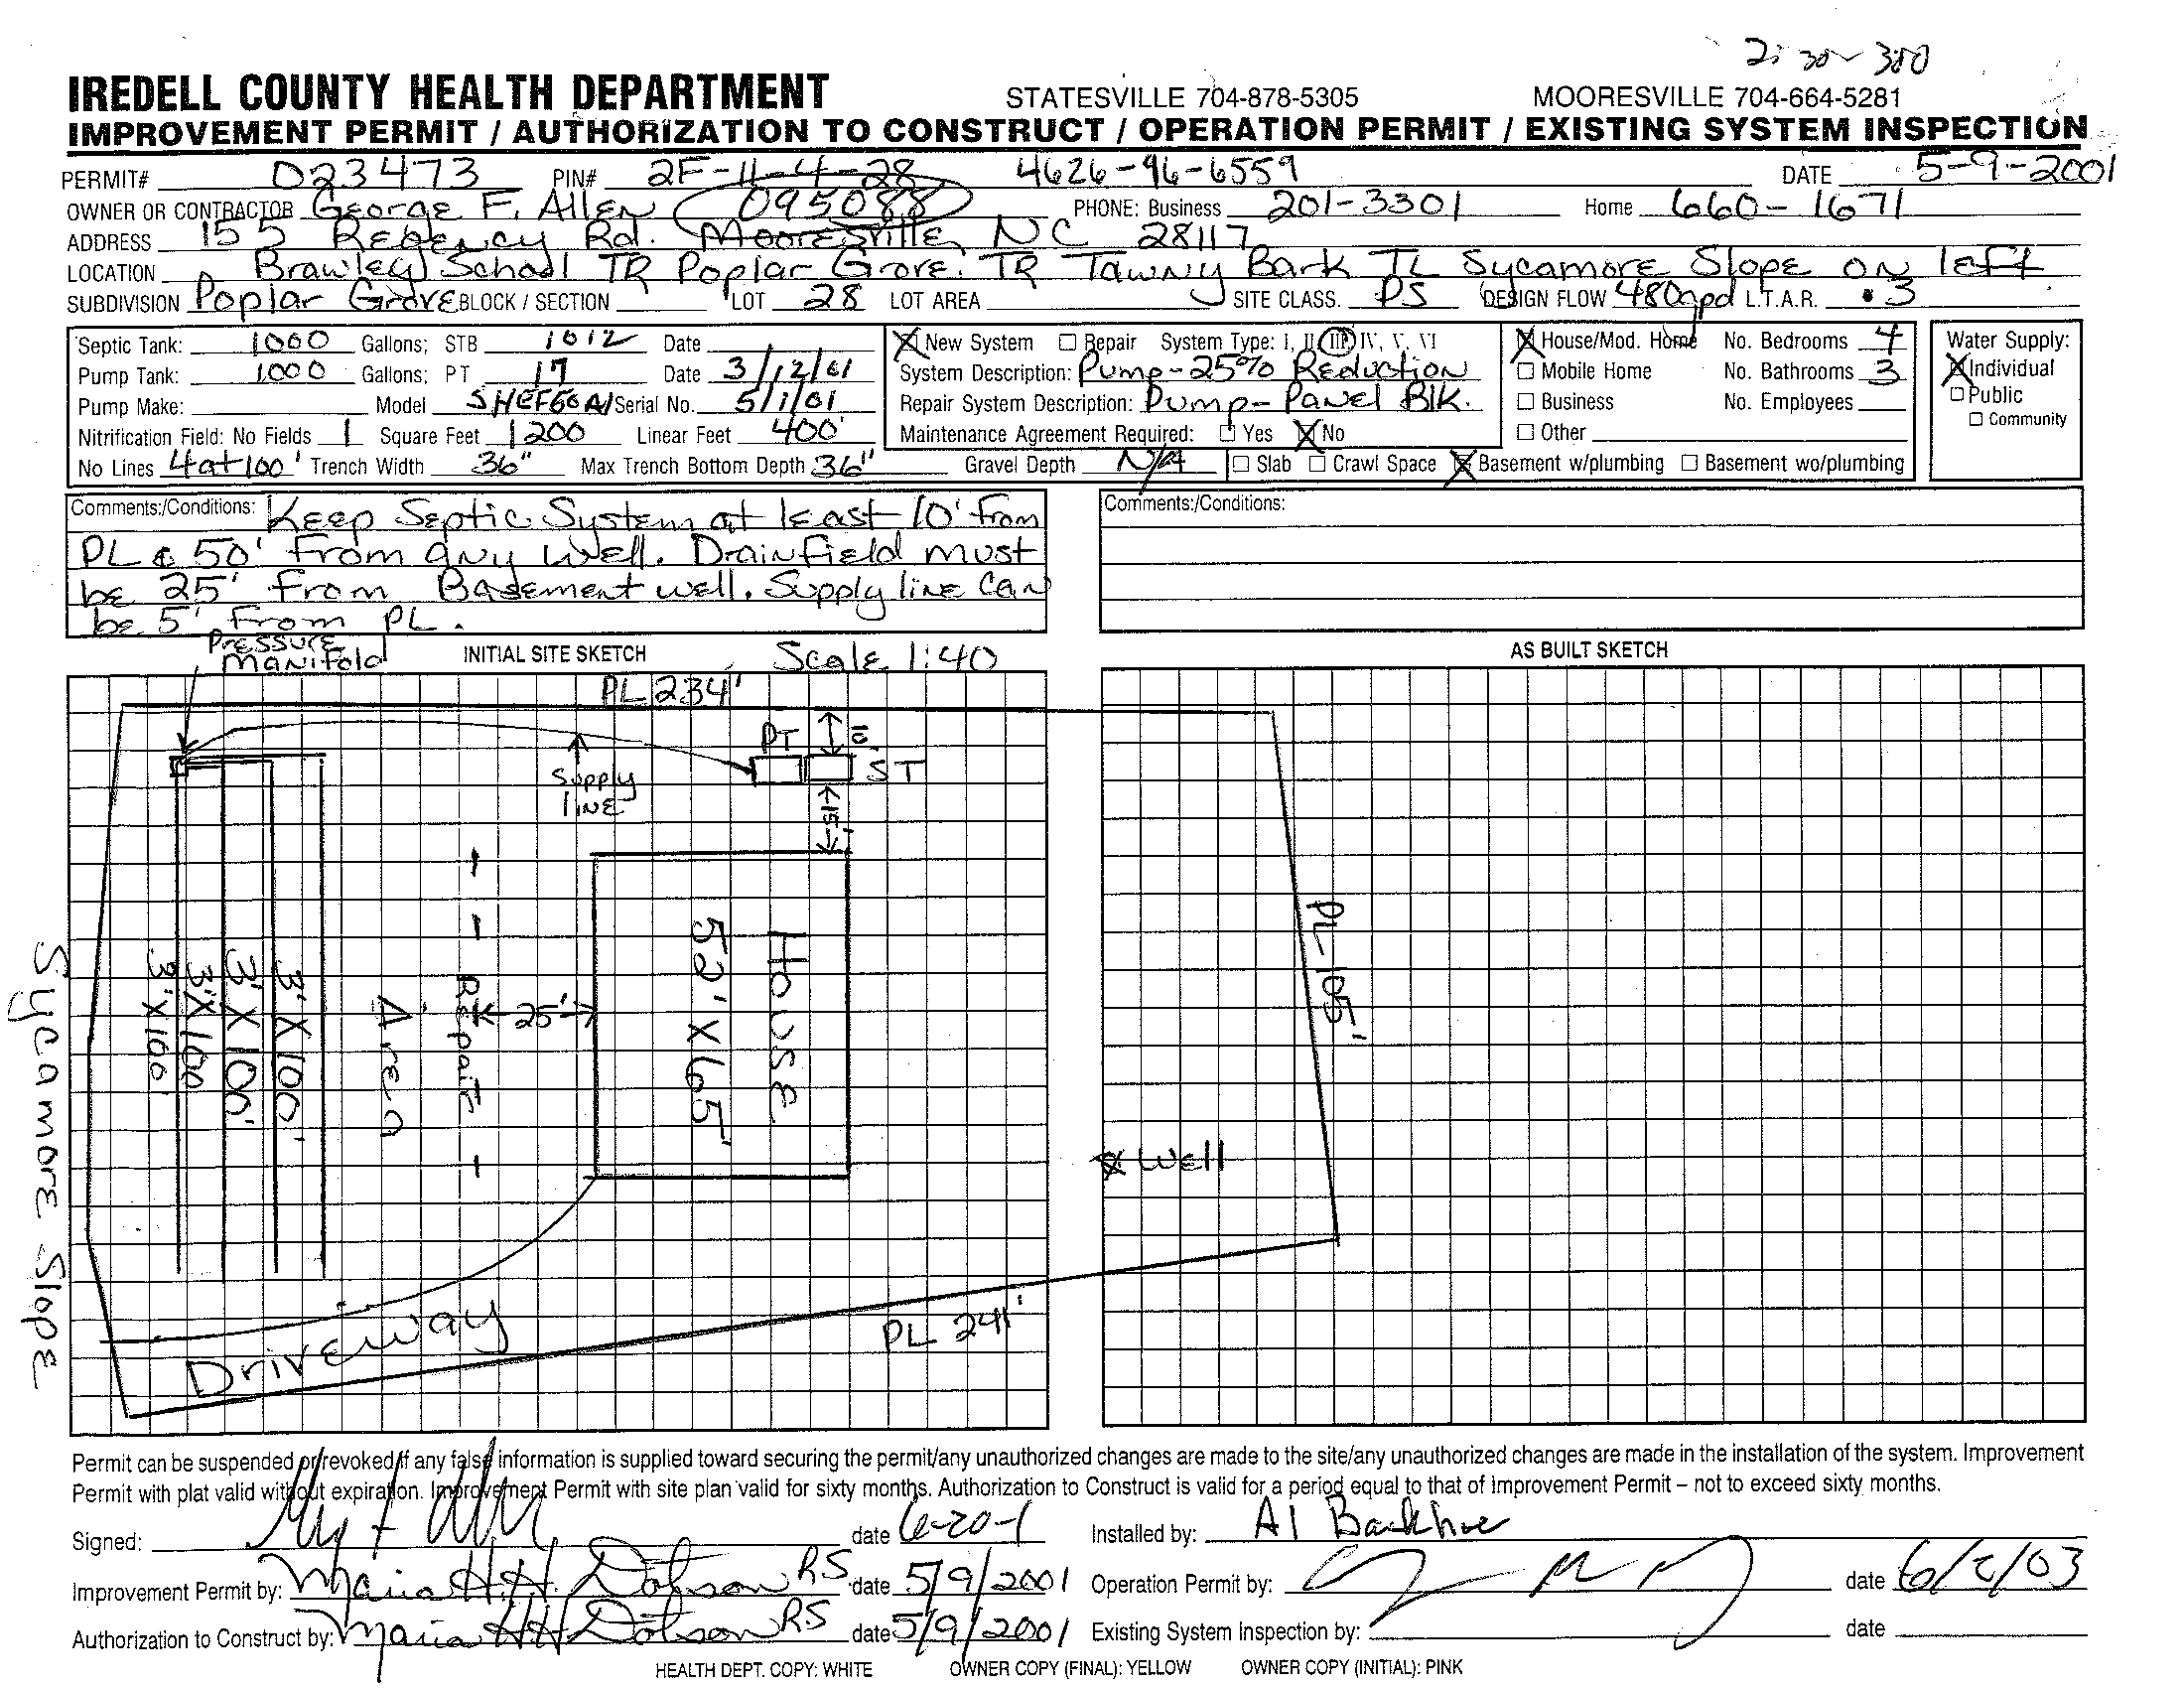 2:30-3:00
IREDELL COUNTY HEALTH DEPARTMENT STATESVILLE 704-878-5305 MOORESVILLE 704-664-5281
IMPROVEMENT PERMIT / AUTHORIZATION TO CONSTRUCT / OPERATION PERMIT / EXISTING SYSTEM INSPECTION
PERMIT# 023473 PIN# 2F-11-4-28 4626-96-6559 DATE 5-9-2001
OWNER OR CONTRACTOR George F. Allen 095088 PHONE: Business 201-3301 Home 660-1671
ADDRESS 155 Regency Rd. Mooresville, NC 28117
LOCATION Brawley School TR Poplar Grove. TR Tawny Bark TL Sycamore Slope on left
SUBDIVISION Poplar Grove BLOCK / SECTION LOT 28 LOT AREA SITE CLASS. PS DESIGN FLOW 480gpd L.T.A.R. .3
Septic Tank: 1000 Gallons; STB 1012 Date
Pump Tank: 1000 Gallons; PT 17 Date 3/12/01
Pump Make: Model SHEF60A1 Serial No. 5/1/01
Nitrification Field: No Fields 1 Square Feet 1200 Linear Feet 400'
No Lines 4 at 100' Trench Width 36" Max Trench Bottom Depth 36" Gravel Depth N/A
New System Repair System Type: I, II, III, IV, V, VI
System Description: Pump-25% Reduction
Repair System Description: Pump-Panel Blk.
Maintenance Agreement Required: Yes No
House/Mod. Home No. Bedrooms 4
Mobile Home No. Bathrooms 3
Business No. Employees
Other
Slab Crawl Space Basement w/plumbing Basement wo/plumbing
Water Supply:
Individual
Public
Community
Comments:/Conditions: Keep Septic System at least 10' from
PL & 50' from any well. Drainfield must
be 25' from Basement well. Supply line can
be 5' from PL.
Comments:/Conditions:
Pressure
Manifold
INITIAL SITE SKETCH Scale 1:40
AS BUILT SKETCH
PL 234'
PT
10'
ST
Supply
line
15'
House
52' X 65'
25'
Repair
Area
3' X 100'
3' X 100'
3' X 100'
3' X 100'
Sycamore Slope
PL 105'
Well
Driveway
PL 241'
Permit can be suspended or revoked if any false information is supplied toward securing the permit/any unauthorized changes are made to the site/any unauthorized changes are made in the installation of the system. Improvement
Permit with plat valid without expiration. Improvement Permit with site plan valid for sixty months. Authorization to Construct is valid for a period equal to that of Improvement Permit – not to exceed sixty months.
Signed: date 6-20-1 Installed by: Al Backhoe
Improvement Permit by: Maria H.H. Dobson RS date 5/9/2001 Operation Permit by: date 6/2/03
Authorization to Construct by: Maria HH Dobson RS date 5/9/2001 Existing System Inspection by: date
HEALTH DEPT. COPY: WHITE OWNER COPY (FINAL): YELLOW OWNER COPY (INITIAL): PINK